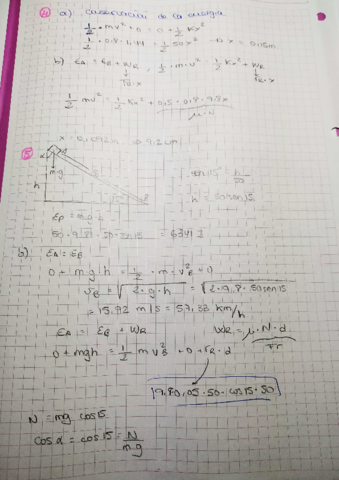 ④ a) Conservación de la energía
1/2 · mv² + 0 = 0 + 1/2 Kx²
1/2 · 0.8 · 1.44 = 1/2 50x² → x = 0,15m
b) EA = EB + WR, 1/2 · m · v² = 1/2 Kx² + WR
1/2 mv² = 1/2 Kx² + 0.5 · 0.8 · 9.8 x
μ · N
x = 0,092m → 9.2cm
⑤
mg
h
sen15 = h/50
h = 50 sen15
Ep = m · g · h
50 · 9.81 · 50 · sen15 = 6341 J
b) EA = EB
0 + mgh = 1/2 · m · vB² + 0
vB = √2 · g · h = √2 · 9,8 · 50 sen15
= 15.92 m/s = 57,33 km/h
EA = EB + WR
WR = μ · N · d
0 + mgh = 1/2 m vB² + 0 + FR · d
Fr
9.80,05 · 50 · cos15 · 50
N = mg cos15
cos α = cos15 = N/mg